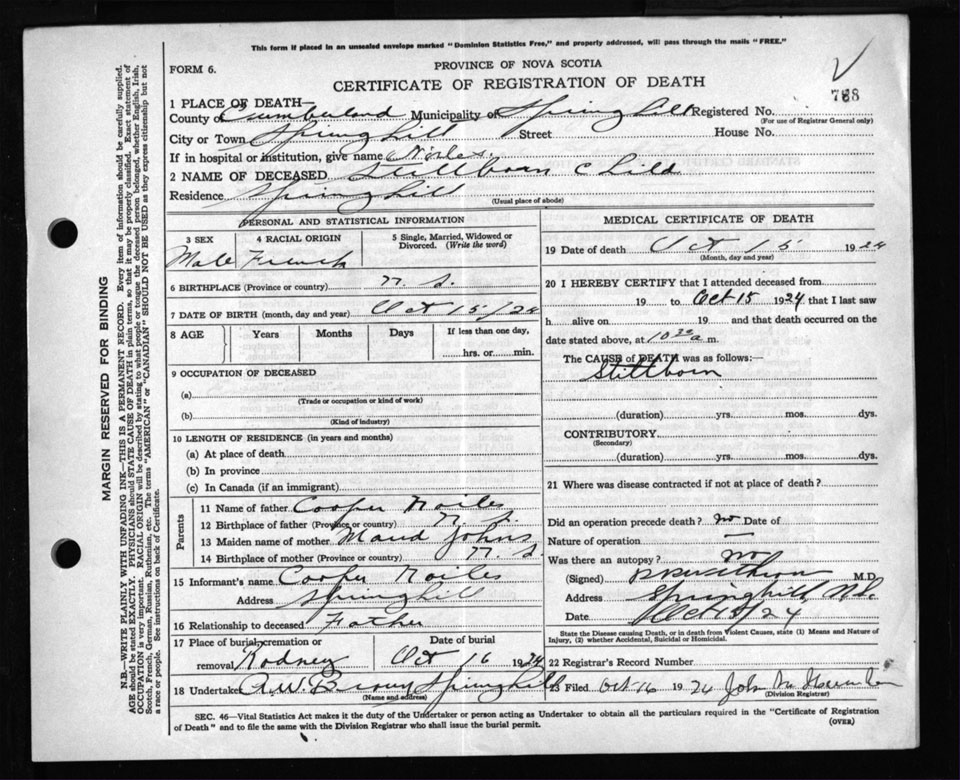 This form if placed in an unsealed envelope marked "Dominion Statistics Free," and properly addressed, will pass through the mails "FREE."
FORM 6.
PROVINCE OF NOVA SCOTIA
CERTIFICATE OF REGISTRATION OF DEATH
788
1 PLACE OF DEATH—
County of Cumberland Municipality of Springhill Registered No.
(For use of Registrar General only)
City or Town Springhill Street House No.
If in hospital or institution, give name
2 NAME OF DECEASED Stillborn Child
Residence Springhill
(Usual place of abode)
PERSONAL AND STATISTICAL INFORMATION
3 SEX 4 RACIAL ORIGIN 5 Single, Married, Widowed or Divorced. (Write the word)
Male French
6 BIRTHPLACE (Province or country) N. S.
7 DATE OF BIRTH (month, day and year) Oct 15/24
8 AGE Years Months Days If less than one day,
hrs. or min.
9 OCCUPATION OF DECEASED
(a)
(Trade or occupation or kind of work)
(b)
(Kind of industry)
10 LENGTH OF RESIDENCE (in years and months)
(a) At place of death
(b) In province
(c) In Canada (if an immigrant)
Parents
11 Name of father Cooper Noiles
12 Birthplace of father (Province or country) N. S.
13 Maiden name of mother Maud Johns
14 Birthplace of mother (Province or country) N. S.
15 Informant's name Cooper Noiles
Address Springhill
16 Relationship to deceased Father
17 Place of burial, cremation or removal Rodney
Date of burial Oct 16 1924
18 Undertaker A.W. Brown Springhill
(Name and address)
MEDICAL CERTIFICATE OF DEATH
19 Date of death Oct 15 1924
(Month, day and year)
20 I HEREBY CERTIFY that I attended deceased from
19 to Oct 15 1924 that I last saw
h alive on 19 and that death occurred on the
date stated above, at 10 30 a.m.
The CAUSE of DEATH was as follows:—
Stillborn
(duration) yrs. mos. dys.
CONTRIBUTORY
(Secondary)
(duration) yrs. mos. dys.
21 Where was disease contracted if not at place of death?
Did an operation precede death? no Date of
Nature of operation —
Was there an autopsy? no
(Signed) M.D.
Address Springhill, N.S.
Date Oct 15/24
State the Disease causing Death, or in death from Violent Causes, state (1) Means and Nature of
Injury, (2) whether Accidental, Suicidal or Homicidal.
22 Registrar's Record Number
23 Filed Oct 16 1924 John
(Division Registrar)
SEC. 46—Vital Statistics Act makes it the duty of the Undertaker or person acting as Undertaker to obtain all the particulars required in the "Certificate of Registration
of Death" and to file the same with the Division Registrar who shall issue the burial permit.
(OVER)
MARGIN RESERVED FOR BINDING
N.B.—WRITE PLAINLY WITH UNFADING INK—THIS IS A PERMANENT RECORD. Every item of information should be carefully supplied.
AGE should be stated EXACTLY. PHYSICIANS should STATE CAUSE OF DEATH in plain terms, so that it may be properly classified. Exact statement of
OCCUPATION is very important. RACIAL ORIGIN will be described by stating to what people or tongue the deceased person belonged, whether English, Irish,
Scotch, French, German, Russian, Ruthenian, etc. The terms "AMERICAN" or "CANADIAN" SHOULD NOT BE USED as they express citizenship but not
a race or people. See instructions on back of Certificate.